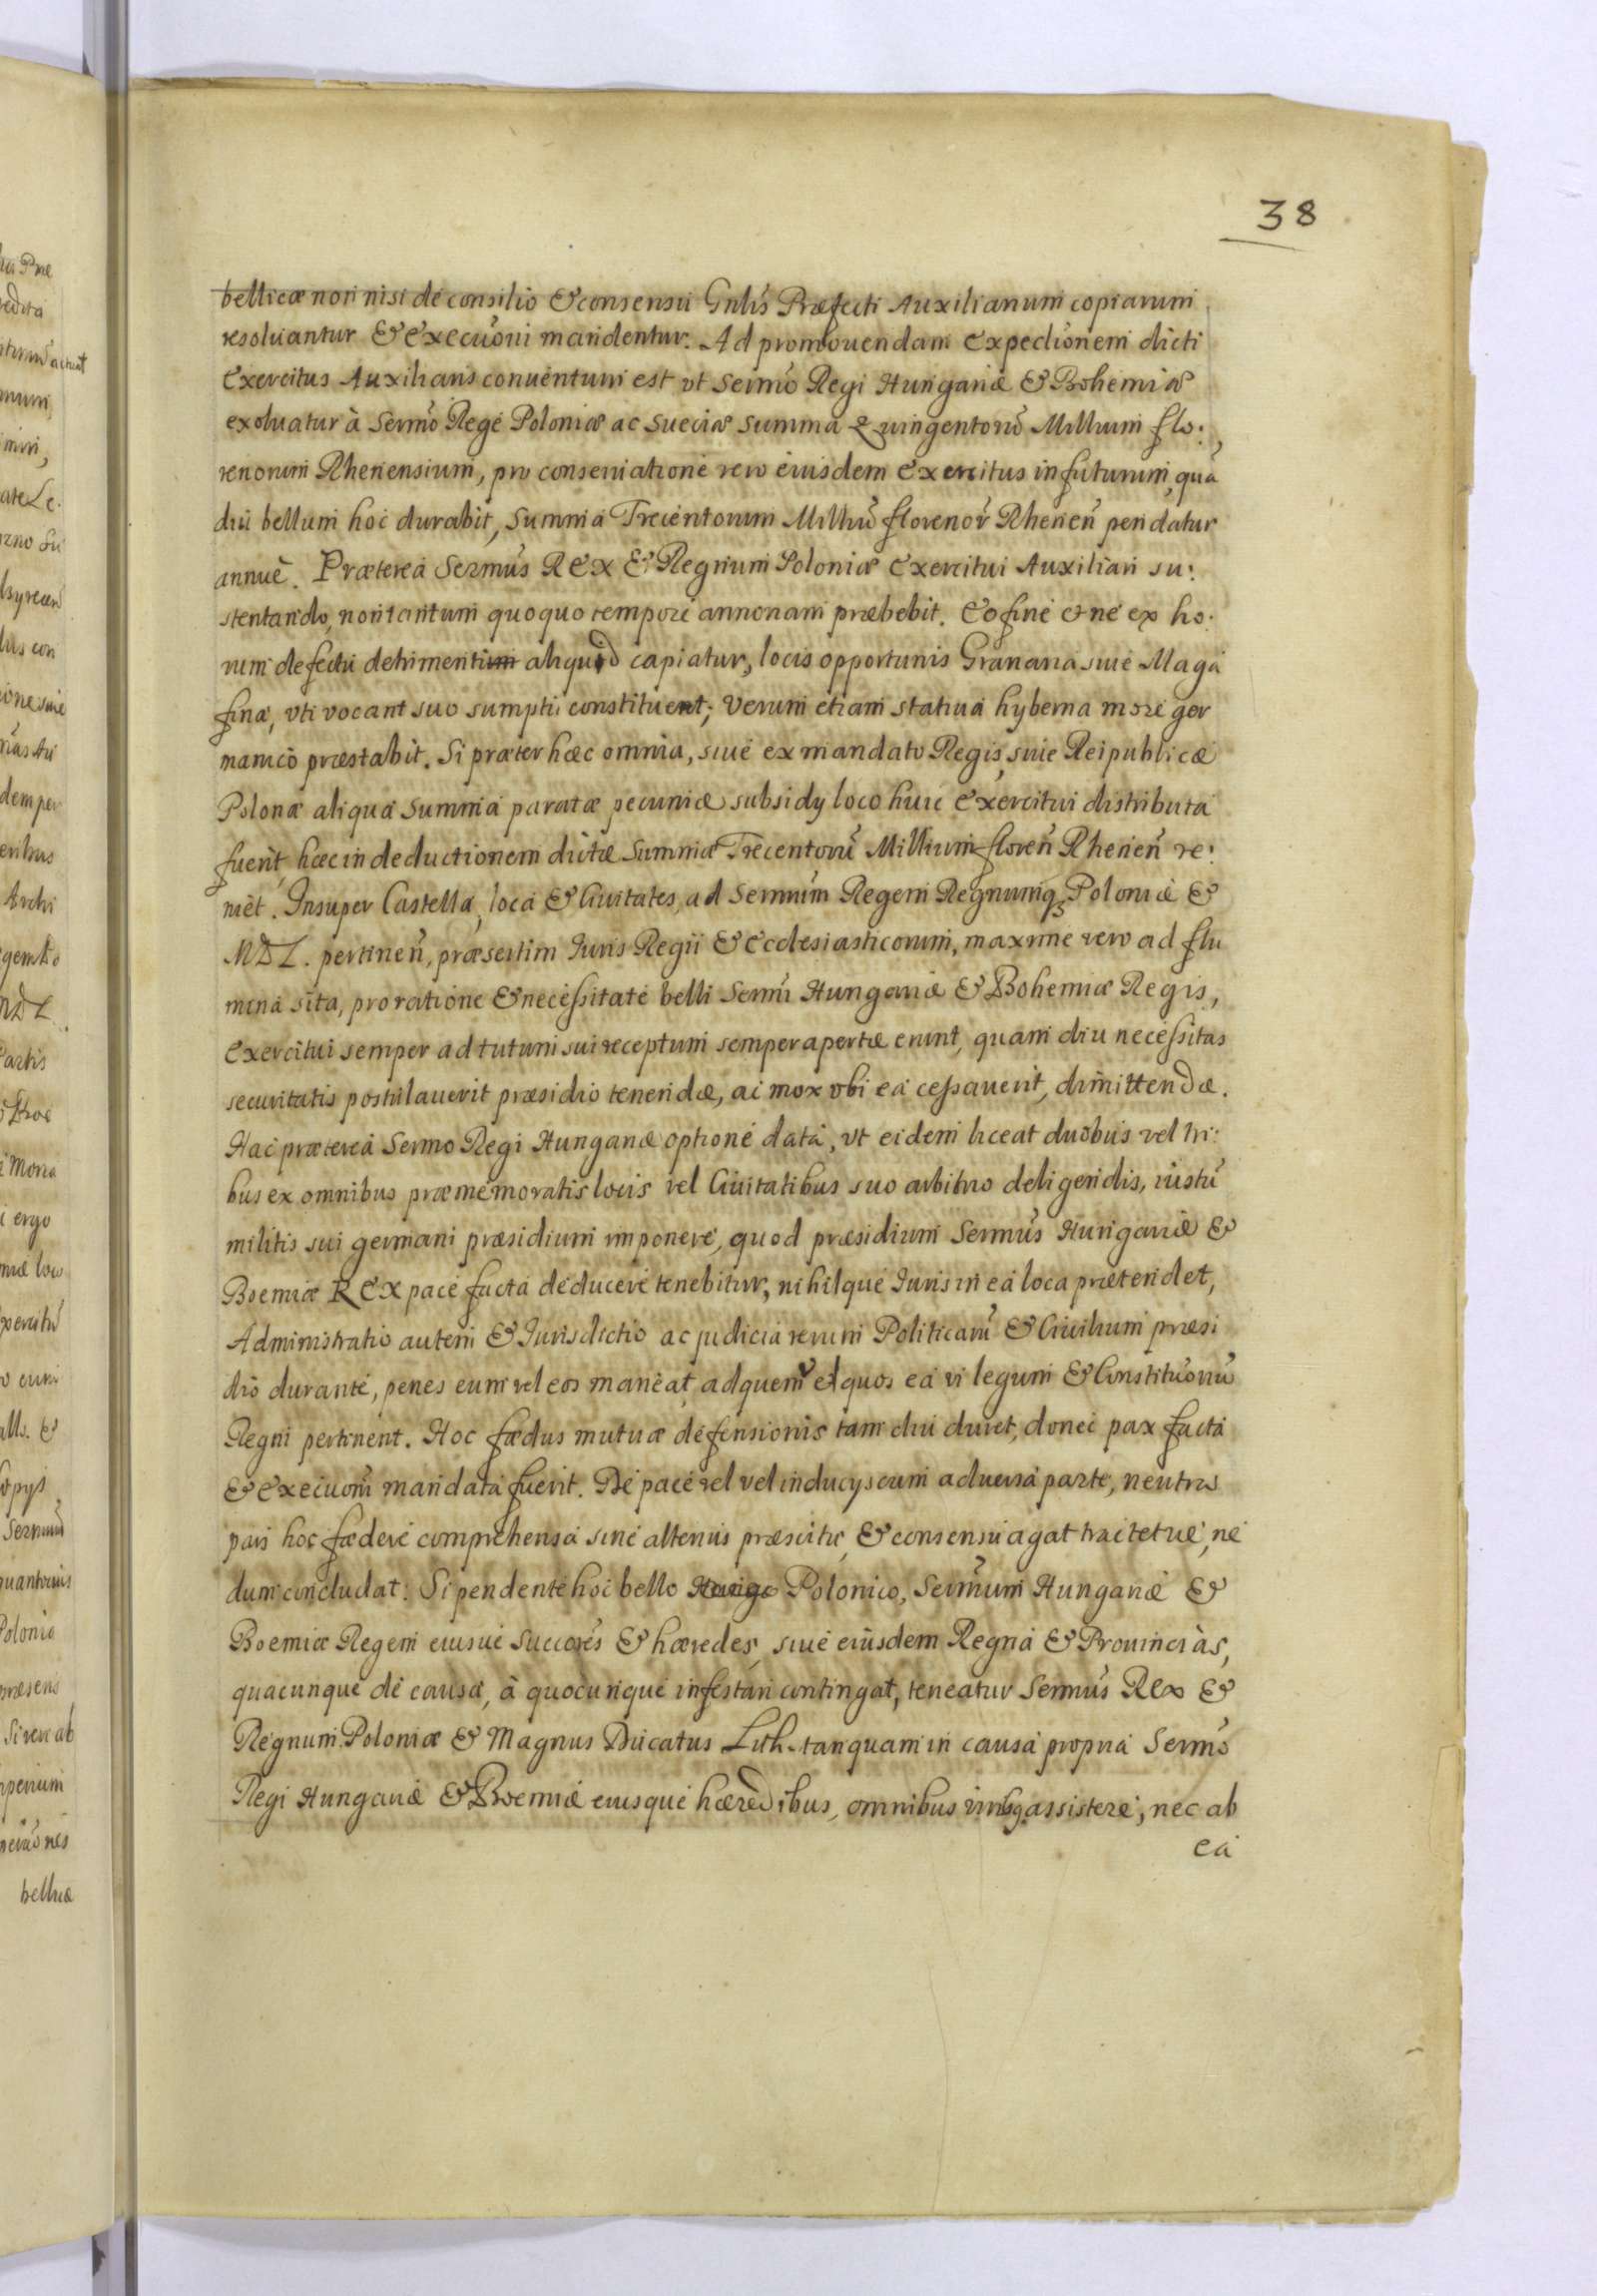 38
bellicæ non nisi de consilio & consensu Gnlis Præfecti Auxiliarium copiarum
resoluantur & Executioni mandentur. Ad promouendam Expeditionem dicti
Exercitus Auxiliaris conuentum est vt Sermo Regi Hungariæ & Bohemiæ
exoluatur à Sermo Rege Poloniæ ac Sueciæ summa Quingentorū Millium flo:
renorum Rhenensium, pro conseruatione vero eiusdem Exercitus in futurum, quā
diu bellum hoc durabit, summa Trecentorum Milliū florenor̄ Rhenen̄ pendatur
annuè. Præterea Sermus REX & Regnum Poloniæ Exercitui Auxiliari su:
stentando, non tantum quoquo tempore annonam præbebit. Eo fine & ne ex ho:
rum defectu detrimenti aliquid capiatur, locis opportunis Granaria siue Maga
sina, vti vocant suo sumptu constituent; Verum etiam statiua hyberna more ger
manico præstabit. Si præter hæc omnia, siue ex mandato Regis, siue Reipublicæ
Polonæ aliqua summa paratæ pecuniæ subsidy loco huic Exercitui distributa
fuerit, hæc in deductionem dictæ Summæ Trecentorū Millium floren̄ Rhenen̄ ve:
niet. Insuper Castella, loca & Ciuitates, ad Sermum Regem Regnumq; Poloniæ &
MDL. pertinen̄, præsertim Iuris Regii & Ecclesiasticorum, maxime vero ad flu
mina sita, pro ratione & necessitate belli Sermi Hungariæ & Bohemiæ Regis,
Exercitui semper ad tutum sui receptum semper apertæ erunt, quam diu necessitas
securitatis postulauerit præsidio tenendæ, ac mox vbi ea cessauerit, dimittendæ.
Hac præterea Sermo Regi Hungariæ optione data, vt eidem liceat duobus vel tri:
bus ex omnibus præmemoratis locis vel Ciuitatibus suo arbitrio deligendis, iustū
militis sui germani præsidium imponere, quod præsidium Sermus Hungariæ &
Boemiæ REX pace facta deducere tenebitur, nihilque Iuris in ea loca prætendet,
Administratio autem & Iurisdictio ac judicia rerum Politicarū & Ciuilium præsi
dio durante, penes eum vel eos maneat, ad quem vel quos ea vi legum & Constitutionū
Regni pertinent. Hoc fœdus mutuæ defensionis tam diu duret, donec pax facta
& executioni mandata fuerit. De pace vel vel inducys cum aduersa parte, neutra
pars hoc fœdere comprehensa sine alterius præscitu, & consensu agat tractetue, ne
dum concludat. Si pendente hoc bello Polonico, Sermum Hungariæ &
Boemiæ Regem eiusue Succores & hæredes, siue eiusdem Regna & Prouincias,
quacunque de causa, à quocunque infestari contingat, teneatur Sermus Rex &
Regnum Poloniæ & Magnus Ducatus Lith. tanquam in causa propria Sermo
Regi Hungariæ & Boemiæ eiusque hæredibus, omnibus assistere, nec ab
ea